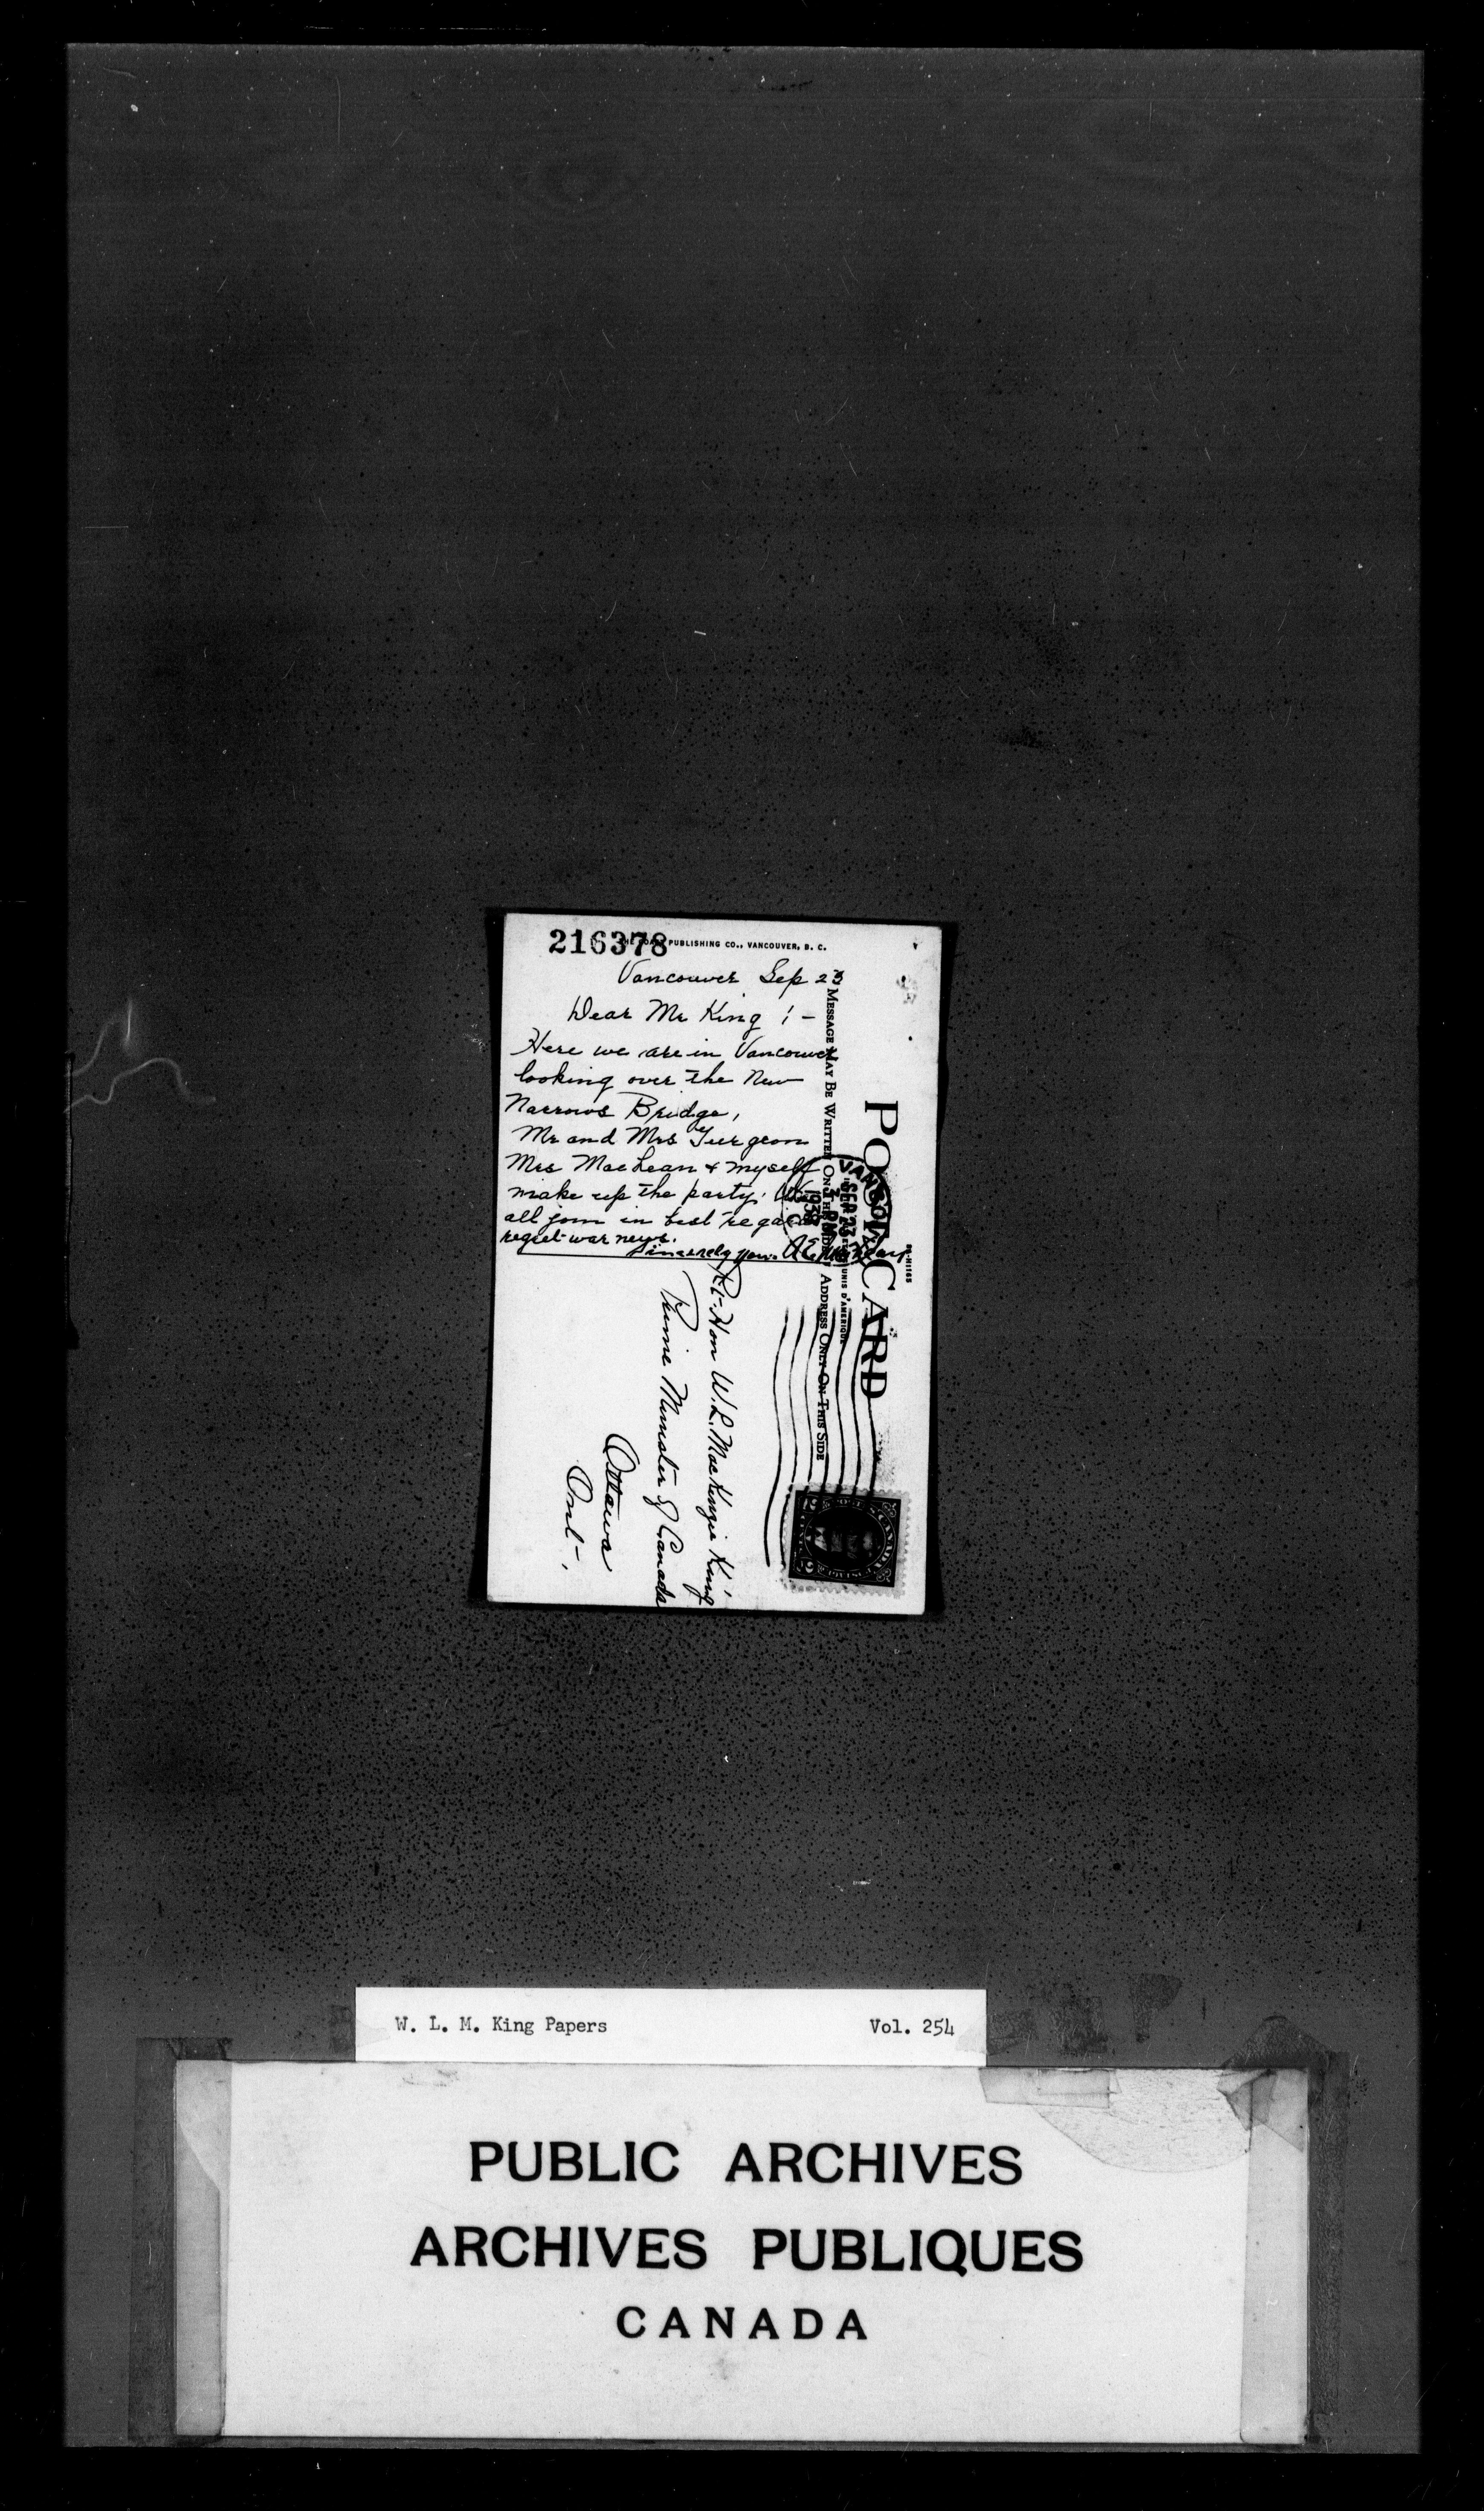 216378
PUBLISHING CO., VANCOUVER, B. C.
Vancouver Sep 23
Dear Mr King :-
Here we are in Vancouver
looking over the New
Narrows Bridge,
Mr and Mrs Turgeon
Mrs MacLean & myself
make up the party. We
all join in best regards
regret war news.
Sincerely yours A E MacLean
POST CARD
MESSAGE MAY BE WRITTEN ON THIS SIDE
ADDRESS ONLY ON THIS SIDE
UNIS D'AMERIQUE
VANCOUVER
SEP 23
3 PM
1939
B C
Rt-Hon W.L. MacKenzie King
Prime Minister of Canada
Ottawa
Ont-.
W. L. M. King Papers Vol. 254
PUBLIC ARCHIVES
ARCHIVES PUBLIQUES
CANADA